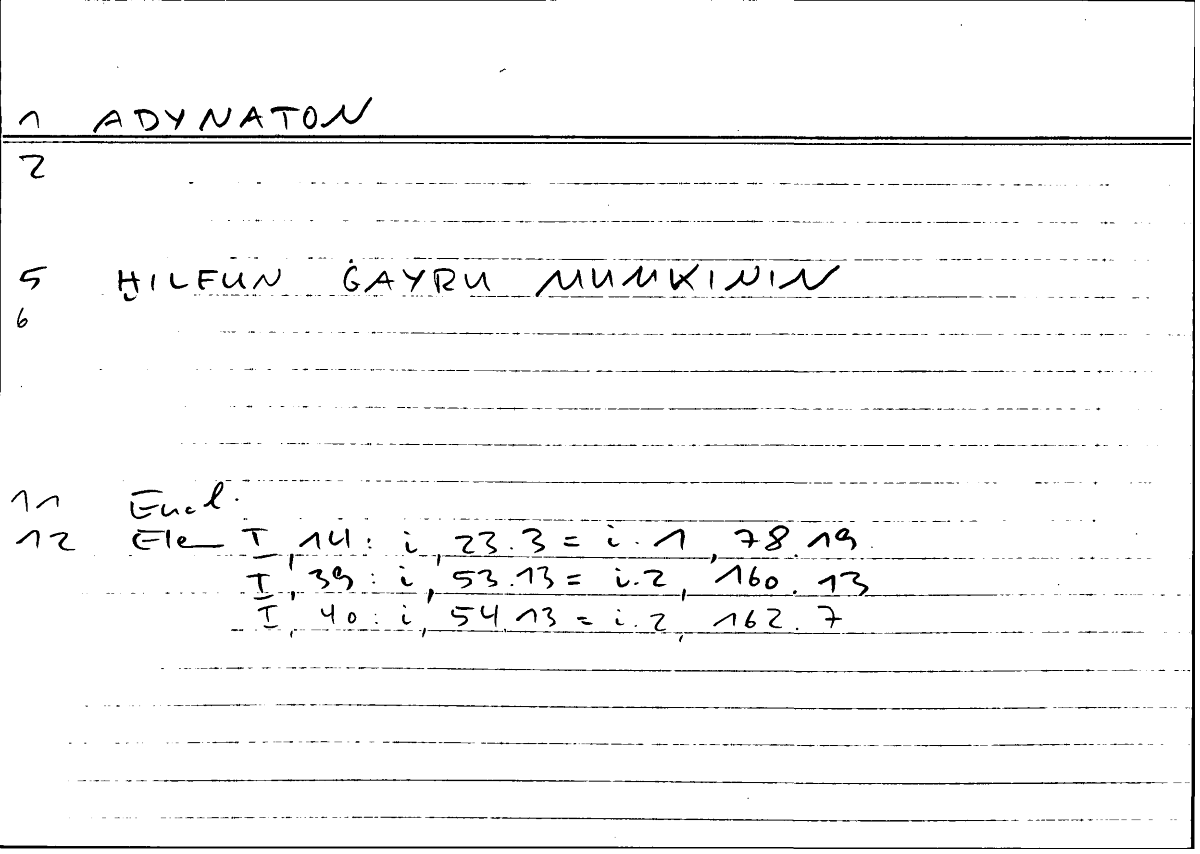 1 ADYNATON
2
5 ḪILFUN ĠAYRU MUMKININ
6
11 Eucl.
12 Elem I, 14: i, 23.3 = i.1, 78.19
I, 39: i, 53.13 = i.2, 160.13
I, 40: i, 54.13 = i.2, 162.7